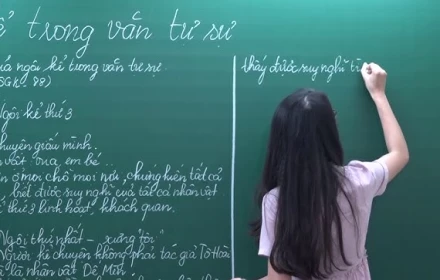 ể trong văn tự sự
à ngôi kể trong văn tự sự
SGK - 88)
Ngôi kể thứ 3
chuyện giấu mình.
ật: vua, em bé...
ở mọi chỗ mọi nơi, chứng kiến tất cả
biết được suy nghĩ của tất cả nhân vật
thứ 3 linh hoạt, khách quan.
Ngôi thứ nhất - xưng "tôi"
Người kể chuyện không phải tác giả Tô Hoài
là nhân vật Dế Mèn.
thấy được suy nghĩ tì